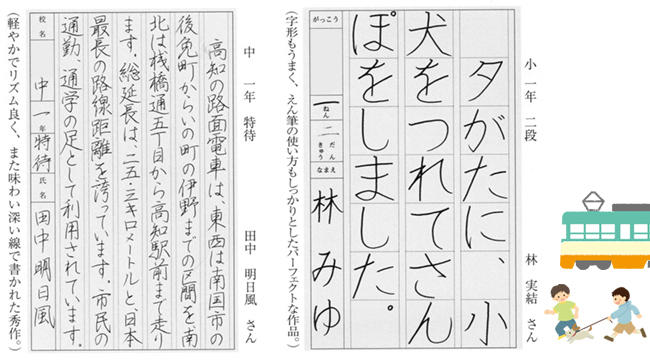 小一年 二段 林 実結 さん
夕がたに、小
犬をつれてさん
ぽをしました。
がっこう 一ねん 二だんきゅう なまえ 林みゆ
(字形もうまく、えん筆の使い方もしっかりとしたパーフェクトな作品。)
中一年 特待 田中 明日風 さん
高知の路面電車は、東西は南国市の
後免町からいの町の伊野までの区間を、南
北は桟橋通五丁目から高知駅前まで走り
ます。総延長は、二五・三キロメートルと、日本
最長の路線距離を誇っています。市民の
通勤、通学の足として利用されています。
校名 中一年 特待 氏名 田中明日風
(軽やかでリズム良く、また味わい深い線で書かれた秀作。)